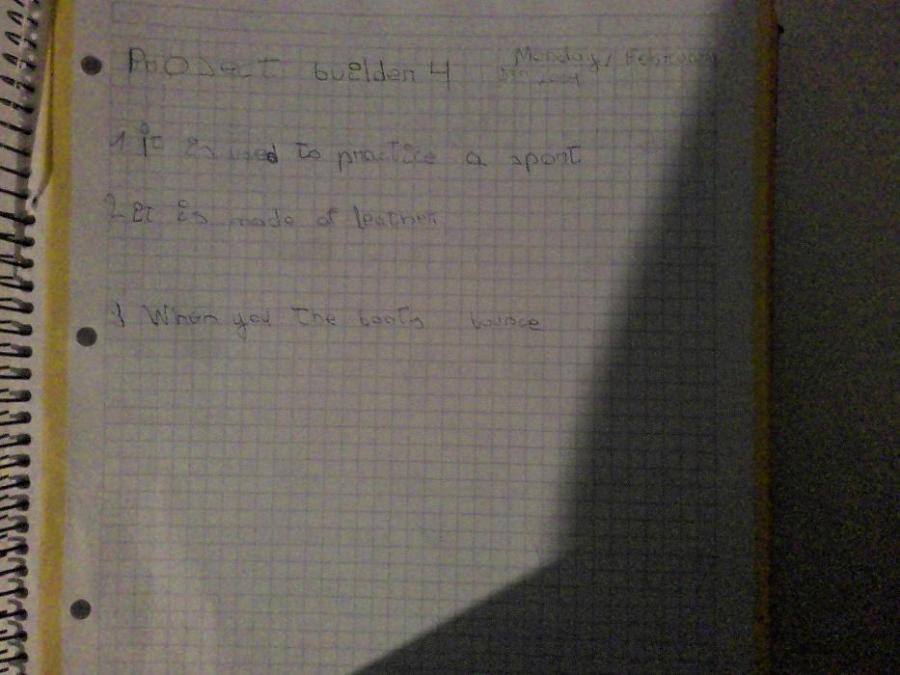 Project builder 4 Monday, February
1 it is used to practice a sport
2 It is made of leather
3 When you the boots bounce